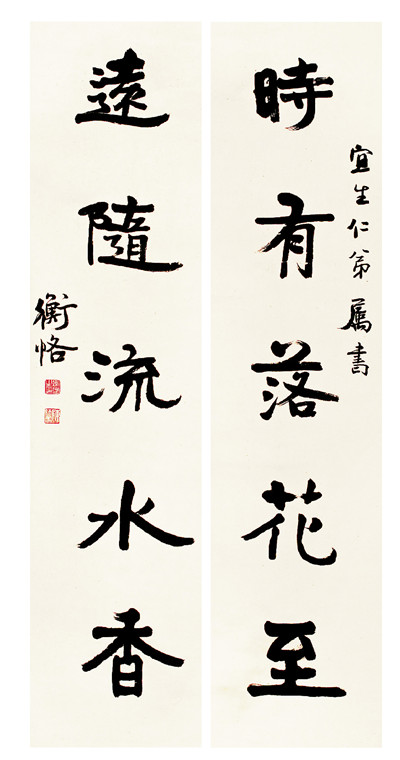 宜生仁弟属書
時有落花至
遠隨流水香
衡恪